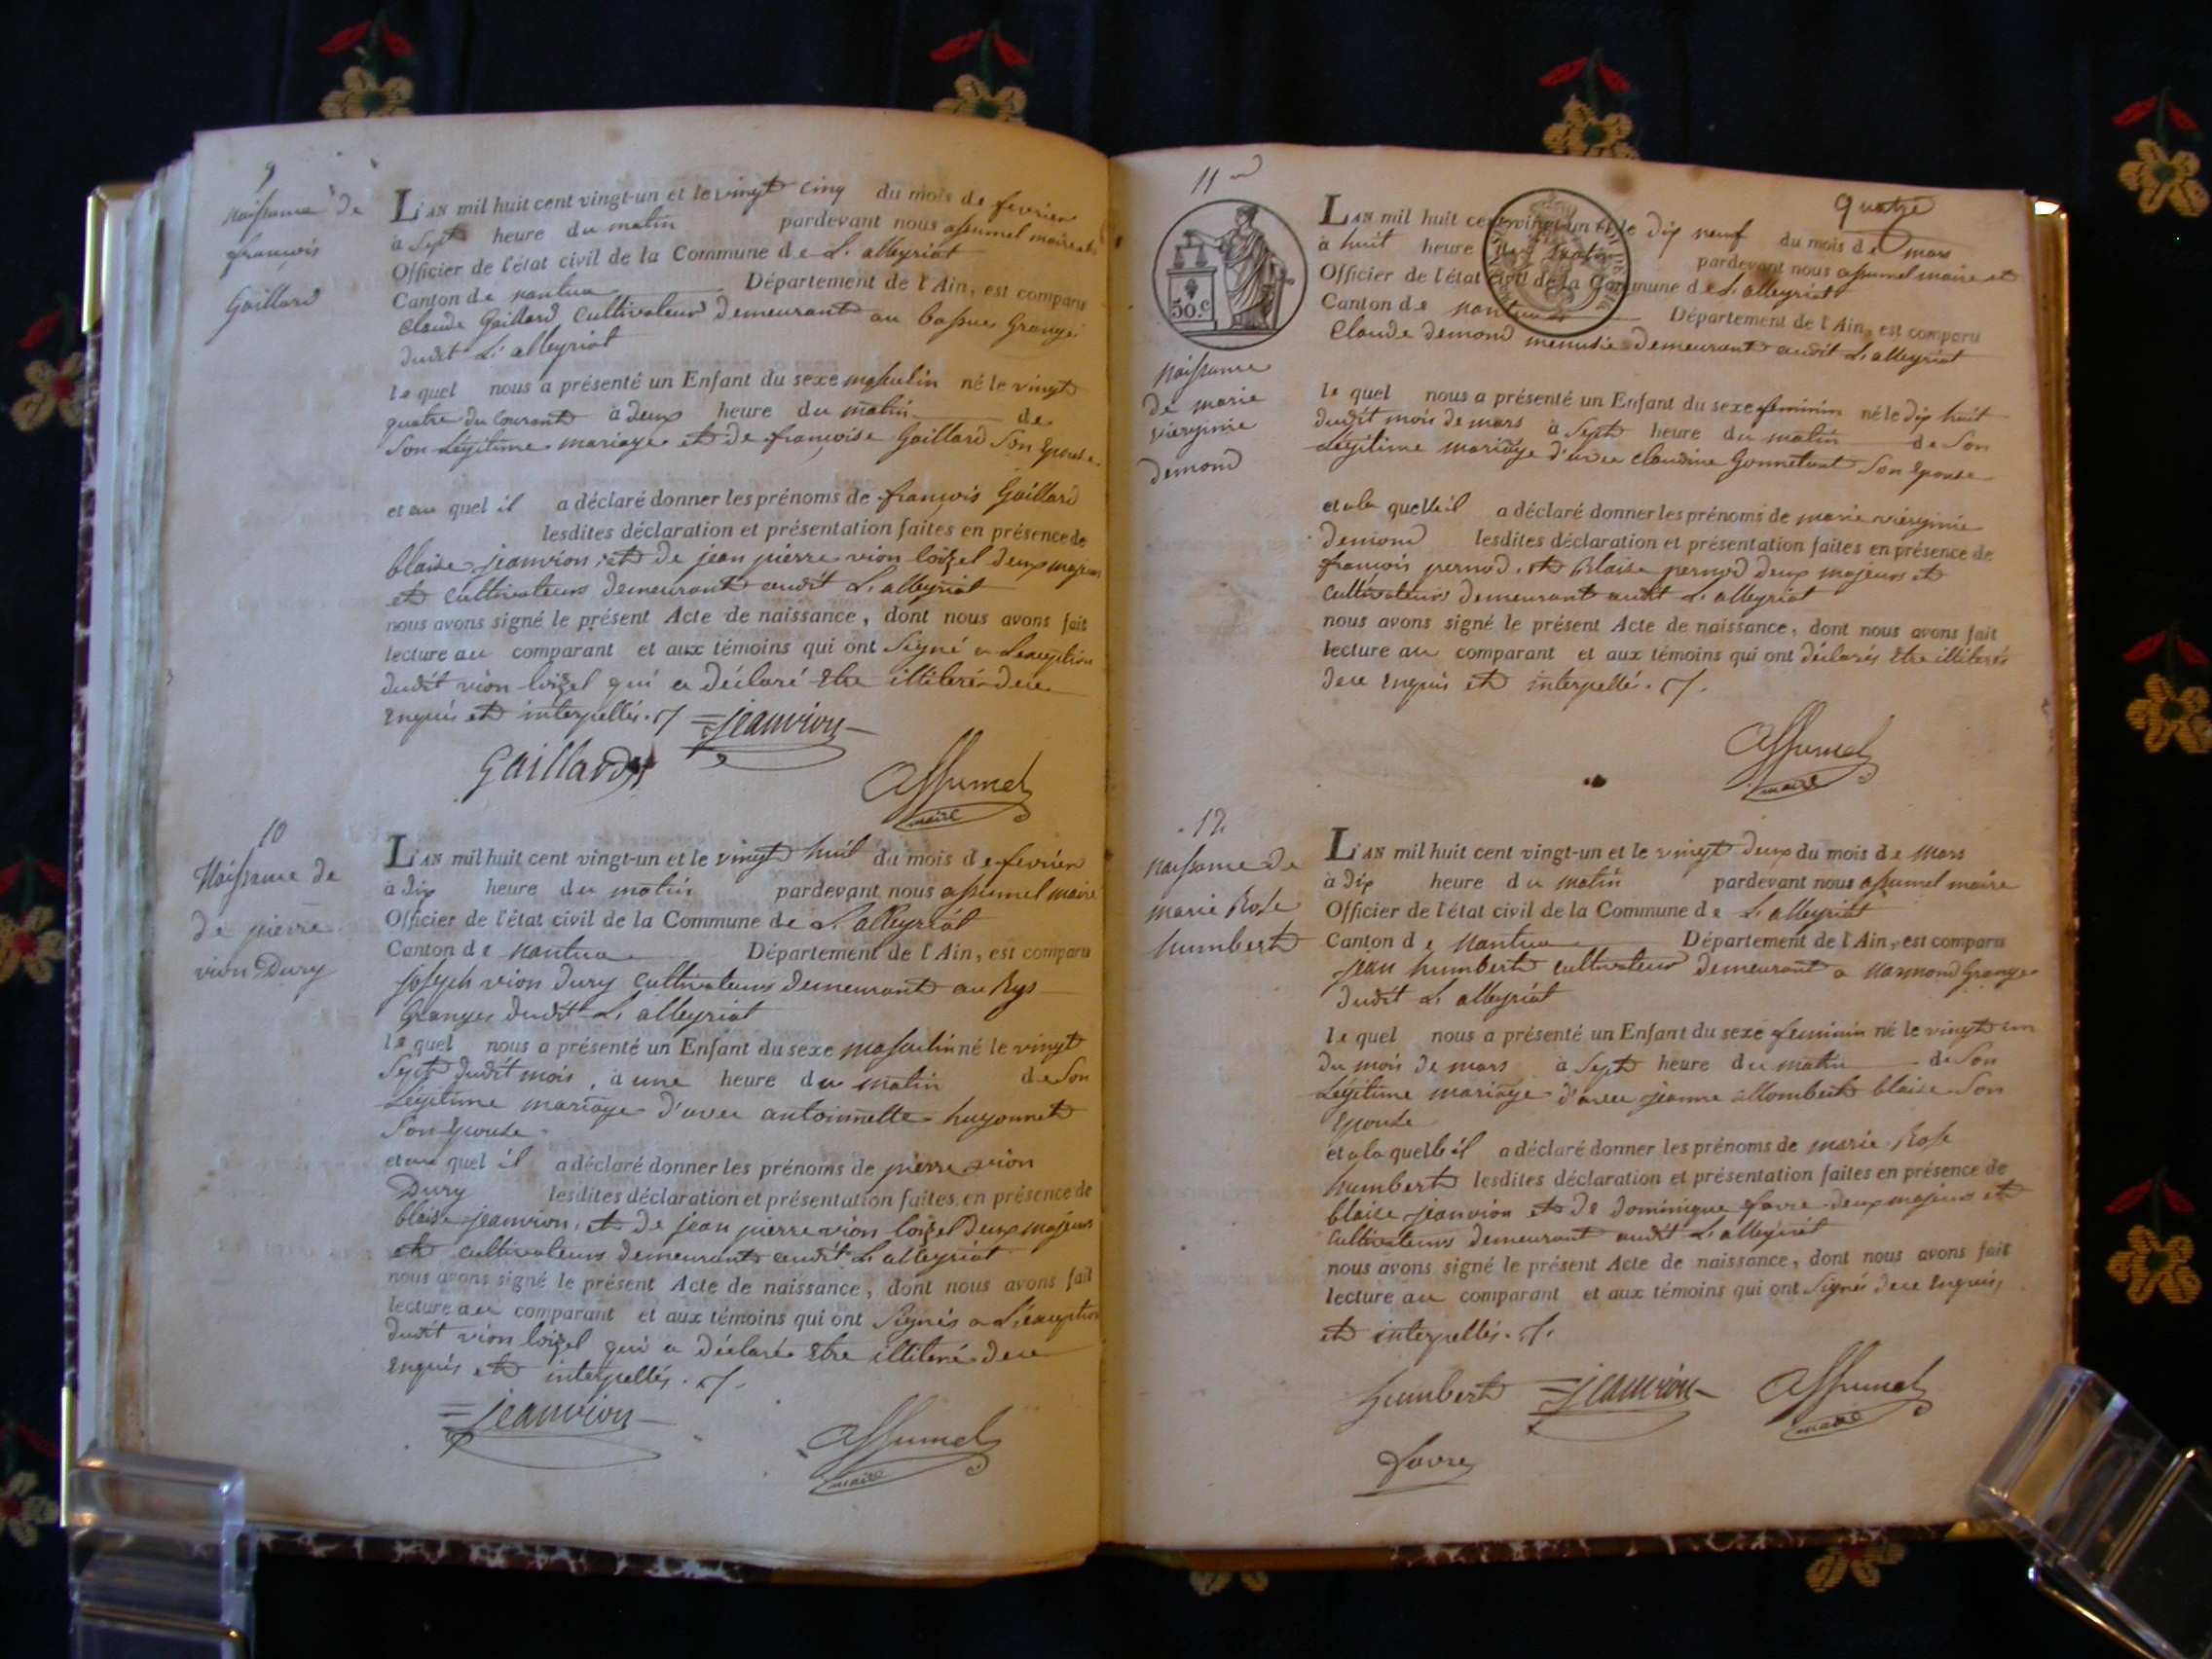 9
naissance de
françois
Gaillard
L'AN mil huit cent vingt-un et le vingt cinq du mois de fevrier
à Sept heure du matin pardevant nous assumel maire et
Officier de l'état civil de la Commune de L'alleyriat
Canton de nantua Département de l'Ain, est comparu
Claude Gaillard Cultivateur demeurant au Granges
dudit L'alleyriat
lequel nous a présenté un Enfant du sexe masculin né le vingt
quatre du Courant à deux heure du matin de
Son Légitime mariage et de françoise Gaillard Son Epouse
et au quel il a déclaré donner les prénoms de françois Gaillard
lesdites déclaration et présentation faites en présence de
blaise jeanvion, et de jean pierre vion loizel deux majeurs
et Cultivateurs demeurant audit L'alleyriat
nous avons signé le présent Acte de naissance, dont nous avons fait
lecture au comparant et aux témoins qui ont Signé a Lexception
dudit vion loizel qui a déclaré Etre illiteré de ce
Enquis et interpellés.
jeanvion
Gaillard
assumel
maire
10
Naissance de
de pierre
vion Dury
L'AN mil huit cent vingt-un et le vingt huit du mois de fevrier
à dix heure du matin pardevant nous assumel maire
Officier de l'état civil de la Commune de L'alleyriat
Canton de nantua Département de l'Ain, est comparu
joseph vion Dury Cultivateurs demeurant au Rys
Granges dudit L'alleyriat
lequel nous a présenté un Enfant du sexe masculin né le vingt
Sept dudit mois, à une heure du matin de Son
Légitime mariage d'avec antoinnette hugonnet
Son Epouse
et au quel il a déclaré donner les prénoms de pierre vion
Dury lesdites déclaration et présentation faites en présence de
blaise jeanvion, et de jean pierre vion loizel deux majeurs
et cultivateurs demeurant audit L'alleyriat
nous avons signé le présent Acte de naissance, dont nous avons fait
lecture au comparant et aux témoins qui ont Signés a L'éxception
dudit vion loizel qui a déclaré Etre illiteré de ce
Enquis et interpellés.
jeanvion
assumel
maire
11
quatre
50.c
naissance
de marie
vierginie
demond
L'AN mil huit cent vingt-un et le dix neuf du mois de mars
à huit heure du matin pardevant nous assumel maire et
Officier de l'état civil de la Commune de L'alleyriat
Canton de nantua Département de l'Ain, est comparu
Claude demond menusie demeurant audit L'alleyriat
lequel nous a présenté un Enfant du sexe feminin né le dix huit
dudit mois de mars à Sept heure du matin de Son
Légitime mariage d'avec claudine Gonnetant Son Epouse
et a la quelle il a déclaré donner les prénoms de marie vierginie
demond lesdites déclaration et présentation faites en présence de
françois pernod, et blaise pernod deux majeurs et
Cultivateurs demeurant audit L'alleyriat
nous avons signé le présent Acte de naissance, dont nous avons fait
lecture au comparant et aux témoins qui ont déclarés Etre illiterés
de ce Enquis et interpellés.
assumel
maire
12
naissance de
marie Rose
humbert
L'AN mil huit cent vingt-un et le vingt deux du mois de mars
à dix heure du matin pardevant nous assumel maire
Officier de l'état civil de la Commune de L'alleyriat
Canton de Nantua Département de l'Ain, est comparu
jean humbert cultivateur demeurant a Grange
dudit L'alleyriat
lequel nous a présenté un Enfant du sexe feminin né le vingt un
du mois de mars à Sept heure du matin de Son
Légitime mariage d'avec jeanne allombert blaise Son
Epouse
et a la quelle il a déclaré donner les prénoms de marie Rose
humbert lesdites déclaration et présentation faites en présence de
blaise jeanvion et de dominique favre deux majeurs et
Cultivateurs demeurant audit L'alleyriat
nous avons signé le présent Acte de naissance, dont nous avons fait
lecture au comparant et aux témoins qui ont Signés de ce Enquis
et interpellés.
humbert jeanvion assumel
maire
favre